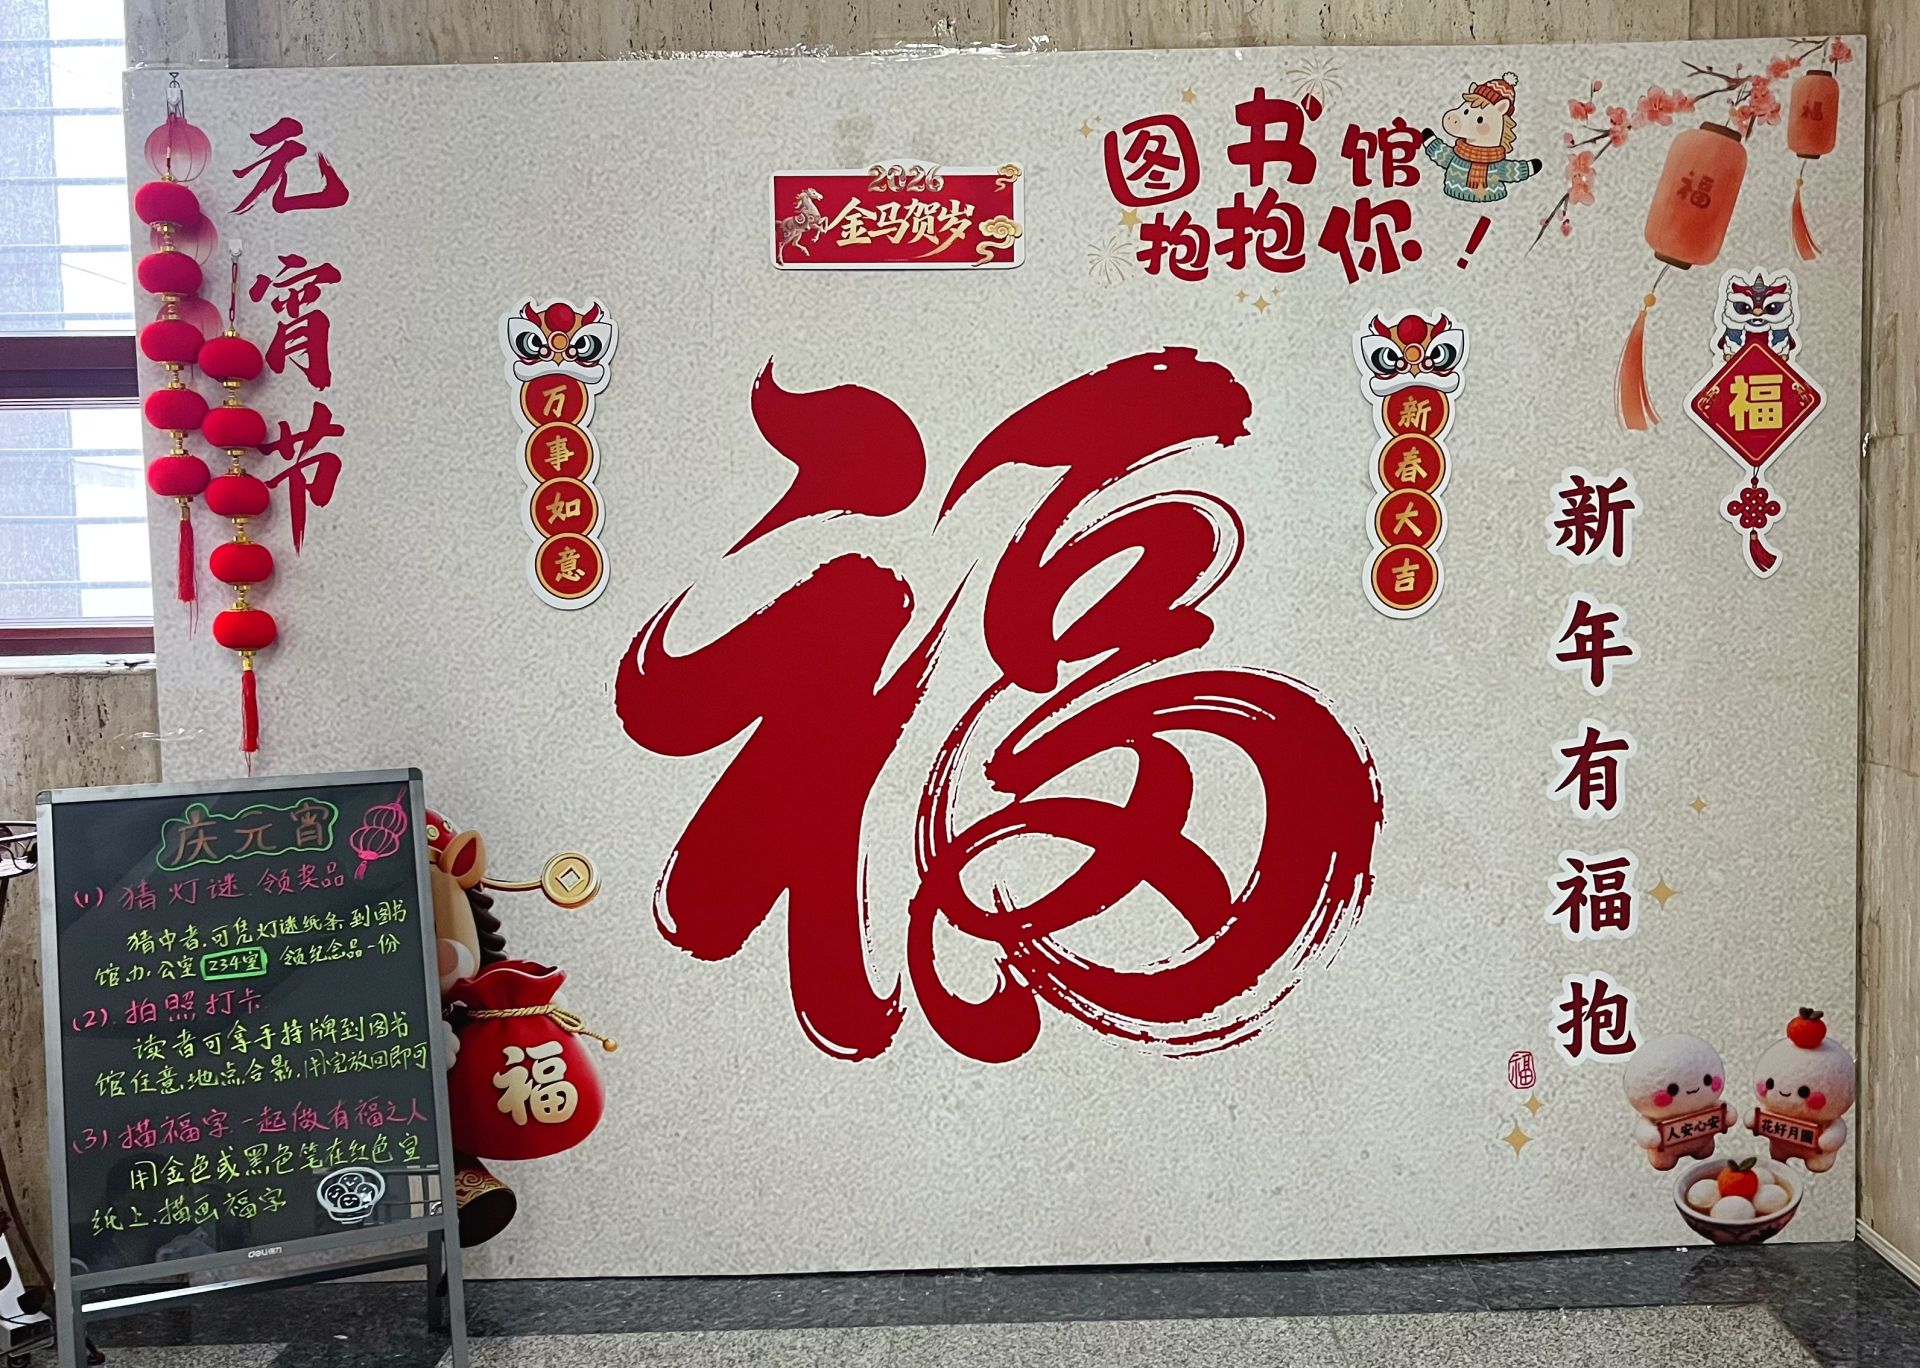 元宵节
2026
金马贺岁
图书馆
抱抱你！
福
福
万事如意
新春大吉
福
福
新年有福抱
福
人安心安
花好月圆
福
庆元宵
(1) 猜灯谜.领奖品
猜中者.可凭灯谜纸条到图书
馆办公室 234室 领纪念品一份
(2) 拍照打卡
读者可拿手持牌到图书
馆任意地点合影.用完放回即可
(3) 描福字 一起做有福之人
用金色或黑色笔在红色宣
纸上.描画福字
deli得力